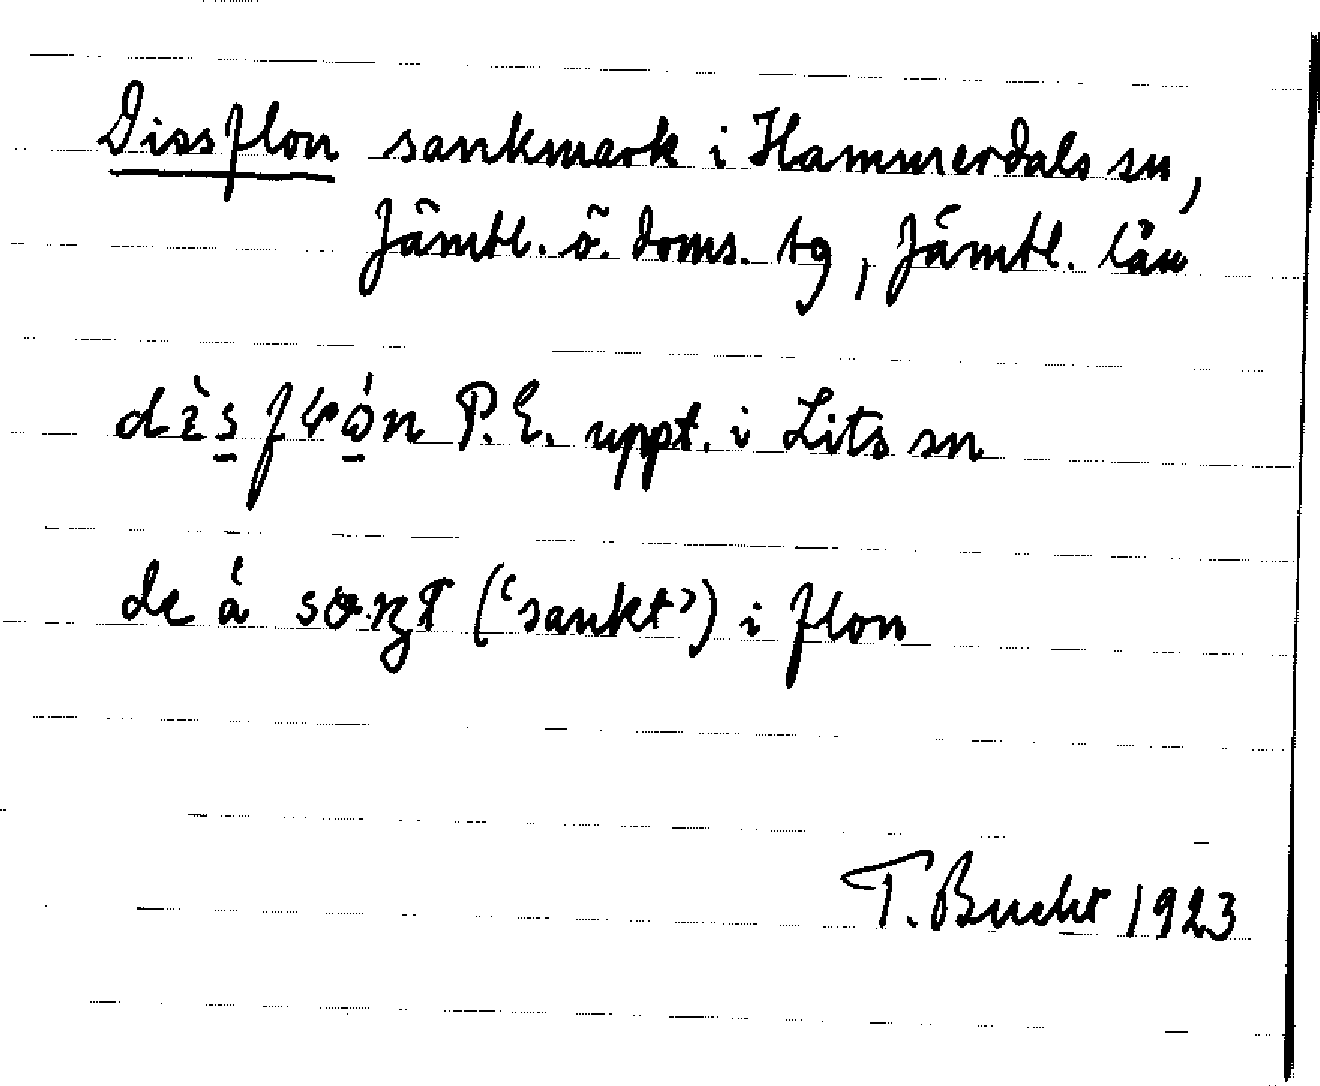 Dissflon sankmark i Hammerdals sn,
Jämtl. ö. doms. tg, Jämtl. län
P.E. uppt. i Lits sn
de á ('sankt') i flon
T. Bucht 1923